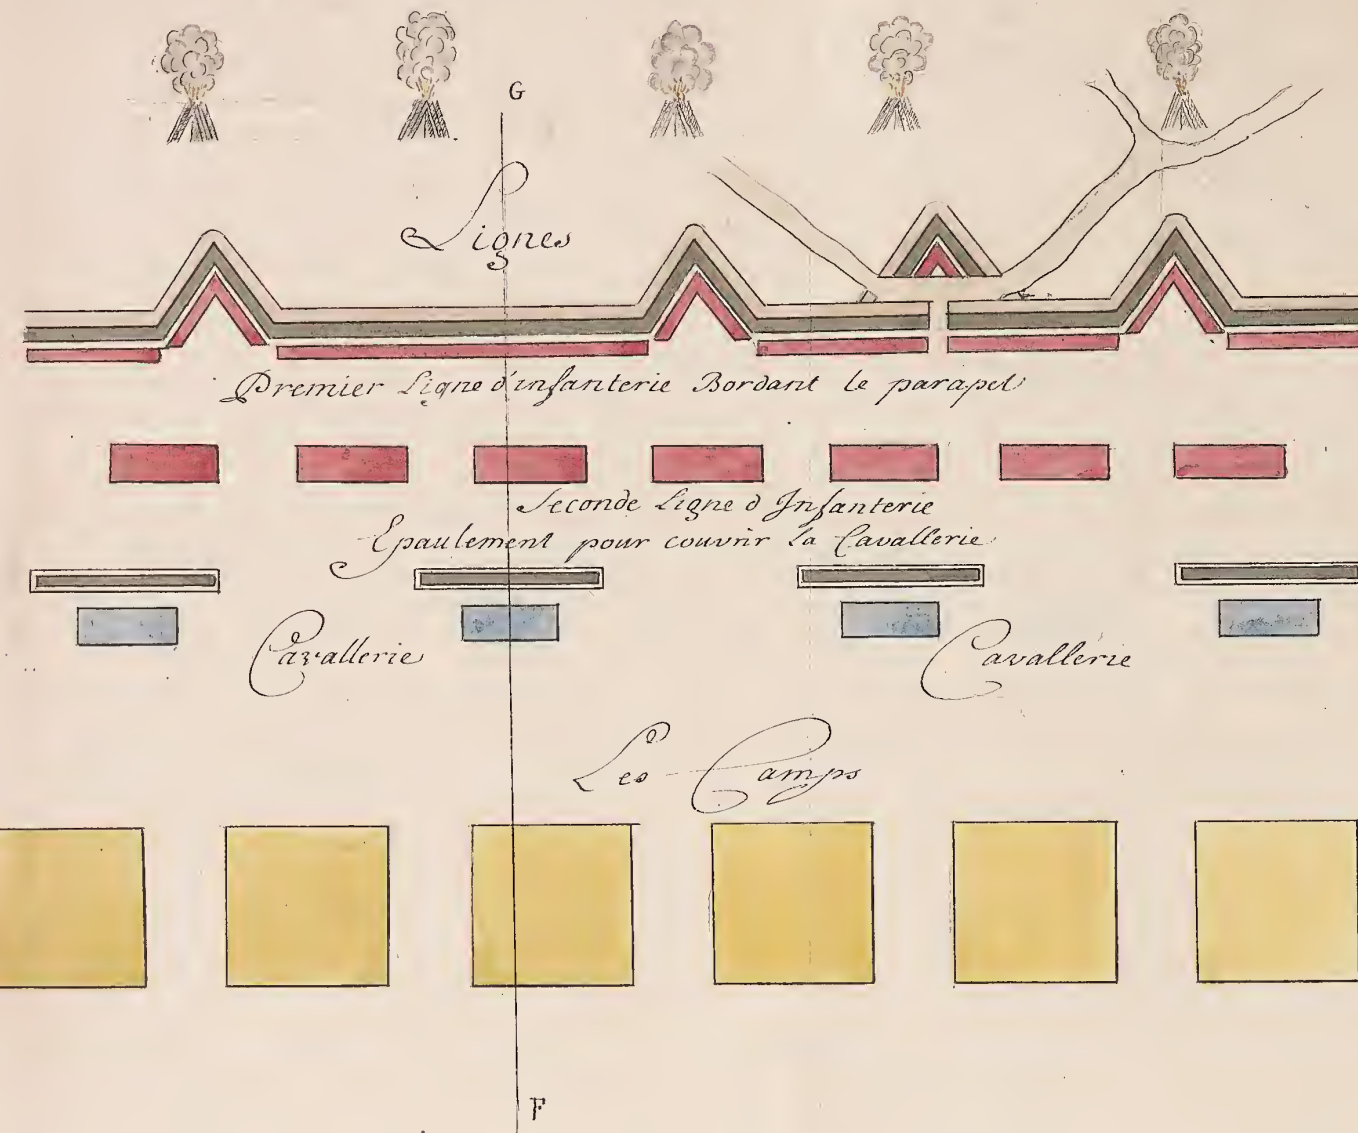 G
Lignes
Premier Ligne d'infanterie Bordant le parapet
Seconde Ligne d Infanterie
Epaulement pour couvrir la Cavallerie
Cavallerie
Cavallerie
Les Camps
F